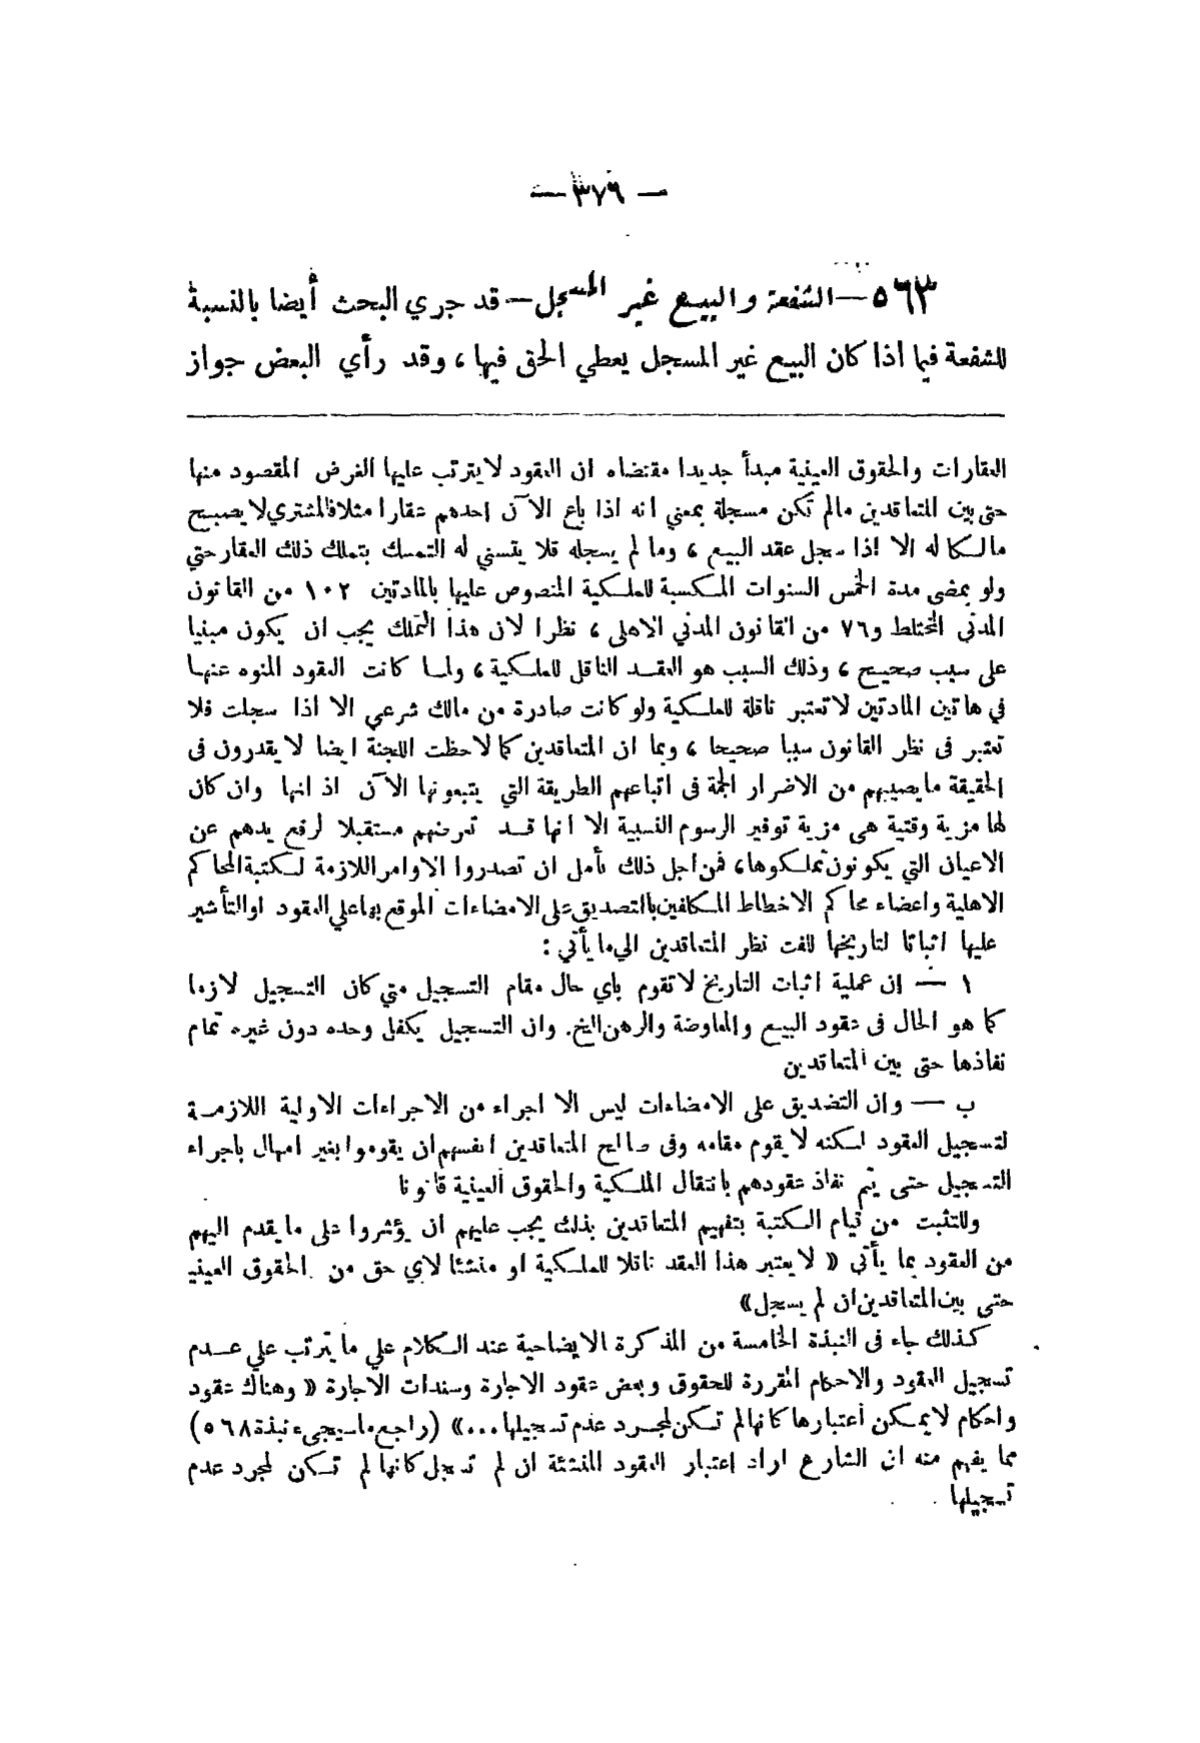 — ٣٧٦ —
٥٦٣ — الشفعة والبيع غير المسجل — قد جري البحث أيضا بالنسبة
للشفعة فيما اذا كان البيع غير المسجل يعطي الحق فيها ، وقد رأي البعض جواز
العقارات والحقوق العينية مبدأ جديدا مقتضاه ان العقود لا يترتب عليها الغرض المقصود منها
حتى بين المتعاقدين مالم تكن مسجلة بمعني انه اذا باع الآن احدهم عقارا مثلا فالمشتري لا يصبح
مالكا له الا اذا سجل عقد البيع ، وما لم يسجله فلا يتسني له التمسك بتملك ذلك العقار حتي
ولو بمضى مدة الخمس السنوات المكسبة للملكية المنصوص عليها بالمادتين ١٠٢ من القانون
المدني المختلط و٧٦ من القانون المدني الاهلى ، نظرا لان هذا التملك يجب ان يكون مبنيا
على سبب صحيح ، وذلك السبب هو العقد الناقل للملكية ، ولما كانت العقود المنوه عنها
في هاتين المادتين لا تعتبر ناقلة للملكية ولو كانت صادرة من مالك شرعي الا اذا سجلت فلا
تعتبر فى نظر القانون سببا صحيحا ، وبما ان المتعاقدين كما لاحظت اللجنة ايضا لا يقدرون فى
الحقيقة ما يصيبهم من الاضرار الجمة فى اتباعهم الطريقة التي يتبعونها الآن اذ انها وان كان
لها مزية وقتية هى مزية توفير الرسوم النسبية الا انها قد تعرضهم مستقبلا لرفع يدهم عن
الاعيان التي يكونون تملكوها، فمن اجل ذلك نأمل ان تصدروا الاوامر اللازمة لكتبة المحاكم
الاهلية واعضاء محاكم الاخطاط المكلفين بالتصديق على الامضاءات الموقع بها علي العقود او التأشير
عليها اثباتا لتاريخها للفت نظر المتعاقدين الي ما يأتي :
١ — إن عملية اثبات التاريخ لا تقوم باي حال مقام التسجيل متي كان التسجيل لازما
كما هو الحال فى عقود البيع والمعاوضة والرهن الخ. وان التسجيل يكفل وحده دون غيره تمام
نفاذها حتى بين المتعاقدين
ب — وان التصديق على الامضاءات ليس الا اجراء من الاجراءات الاولية اللازمة
لتسجيل العقود لكنه لا يقوم مقامه وفى صالح المتعاقدين انفسهم ان يقوموا بغير امهال باجراء
التسجيل حتى يتم نفاذ عقودهم بانتقال الملكية والحقوق العينية قانونا
وللتثبت من قيام الكتبة بتفهيم المتعاقدين بذلك يجب عليهم ان يؤشروا على ما يقدم اليهم
من العقود بما يأتي « لا يعتبر هذا العقد ناقلا للملكية او منشئا لاي حق من الحقوق العينيـ
حتى بين المتعاقدين ان لم يسجل »
كذلك جاء فى النبذة الخامسة من المذكرة الايضاحية عند الكلام علي ما يترتب علي عدم
تسجيل العقود والاحكام المقررة للحقوق وبعض عقود الاجارة وسندات الاجارة « وهناك عقود
واحكام لا يمكن أعتبارها كانها لم تكن لمجرد عدم تسجيلها ... » (راجع ما سيجيء نبذة ٥٦٨)
مما يفهم منه ان الشارع اراد اعتبار العقود المنشئة ان لم تسجل كانها لم تكن لمجرد عدم
تسجيلها